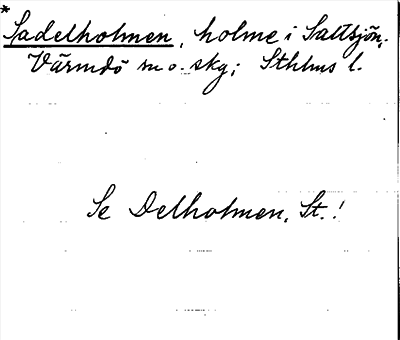 * Sadelholmen, holme i Saltsjön,
Värmdö sn o. skg; Sthlms l.
Se Delholmen, St.!